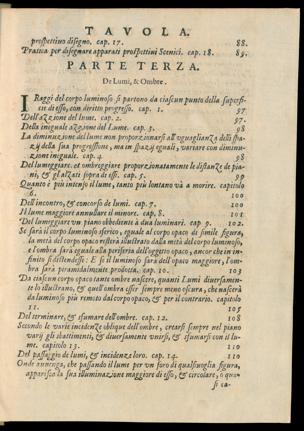 TAVOLA.
prospettivo disegno. cap. 17. 88.
Pratica per disegnare apparati prospettivi Scenici. cap. 18. 89.
PARTE TERZA.
De Lumi, & Ombre.
I Raggi del corpo luminoso si partono da ciascun punto della superfi-
cie di esso, con diritto progresso. cap. 1. 97.
Dell'azzione del lume. cap. 2. 97.
Della ineguale azzione del Lume. cap. 3. 98
La diminuzione del lume non proporzionarsi all'vguaglianza delli spa-
zij della sua progressione, ma in spazij eguali, variare con diminu-
zione ineguale. cap. 4 98
Del lumeggiare, & ombreggiare proporzionatamente le distanze de pia-
ni, & gl'alzati sopra di essi. cap. 5. 99
Quanto è più intenso il lume, tanto più lontano và a morire. capitolo
6. 100
Dell'incontro, & concorso de lumi. cap. 7. 100
Il lume maggiore annullare il minore. cap. 8. 101
Del lumeggiare vn piano obbediente à dua luminari. cap. 9. 102.
Se sarà il corpo luminoso sferico, eguale al corpo opaco di simile figura,
la metà del corpo opaco resterà illustrato dalla metà del corpo luminoso,
e l'ombra sarà eguale alla periferia dell'oggetto opaco, ancor che in in-
finito si distendesse: E se il luminoso sarà dell'opaco maggiore, l'om-
bra sarà piramidalmente prodotta. cap. 10. 103
Da ciascun corpo opaco tante ombre nascere, quanti Lumi diuersamen-
te lo illustrano, & quell'ombra esser sempre meno oscura, che nascerà
da luminoso più remoto dal corpo opaco, & per il contrario. capitolo
11. 105
Del terminare, & sfumare dell'ombre. cap. 12. 108
Secondo le varie incidenze oblique dell'ombre, crearsi sempre nel piano
varij gli sbattimenti, & diuersamente vnirsi, & sfumarsi con il lu-
me. capitolo 13. 110
Del passaggio de lumi, & incidenze loro. cap. 14. 110
Onde auuenga, che passando il lume per vn foro di qualsiuoglia figura,
apparisca la sua illuminazione maggiore di esso, & circolare, ò qua-
si ca-